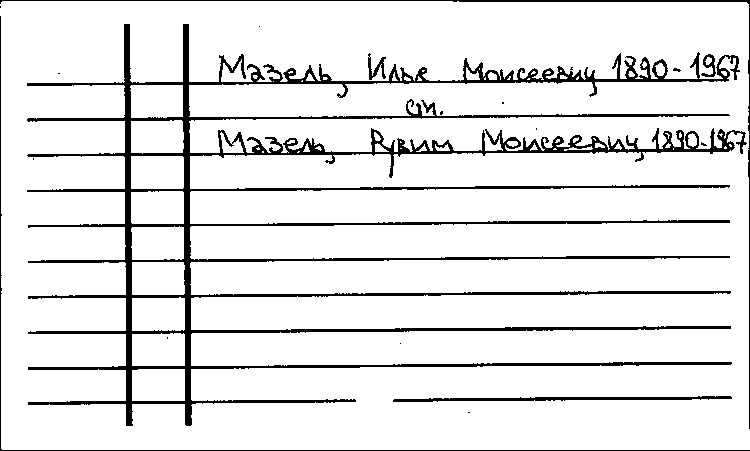 Мазель, Илья Моисеевич, 1890-1967
см.
Мазель, Рувим Моисеевич, 1890-1967